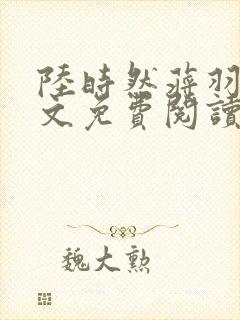 陸時然蒋羽
文免費閱讀
魏大勲